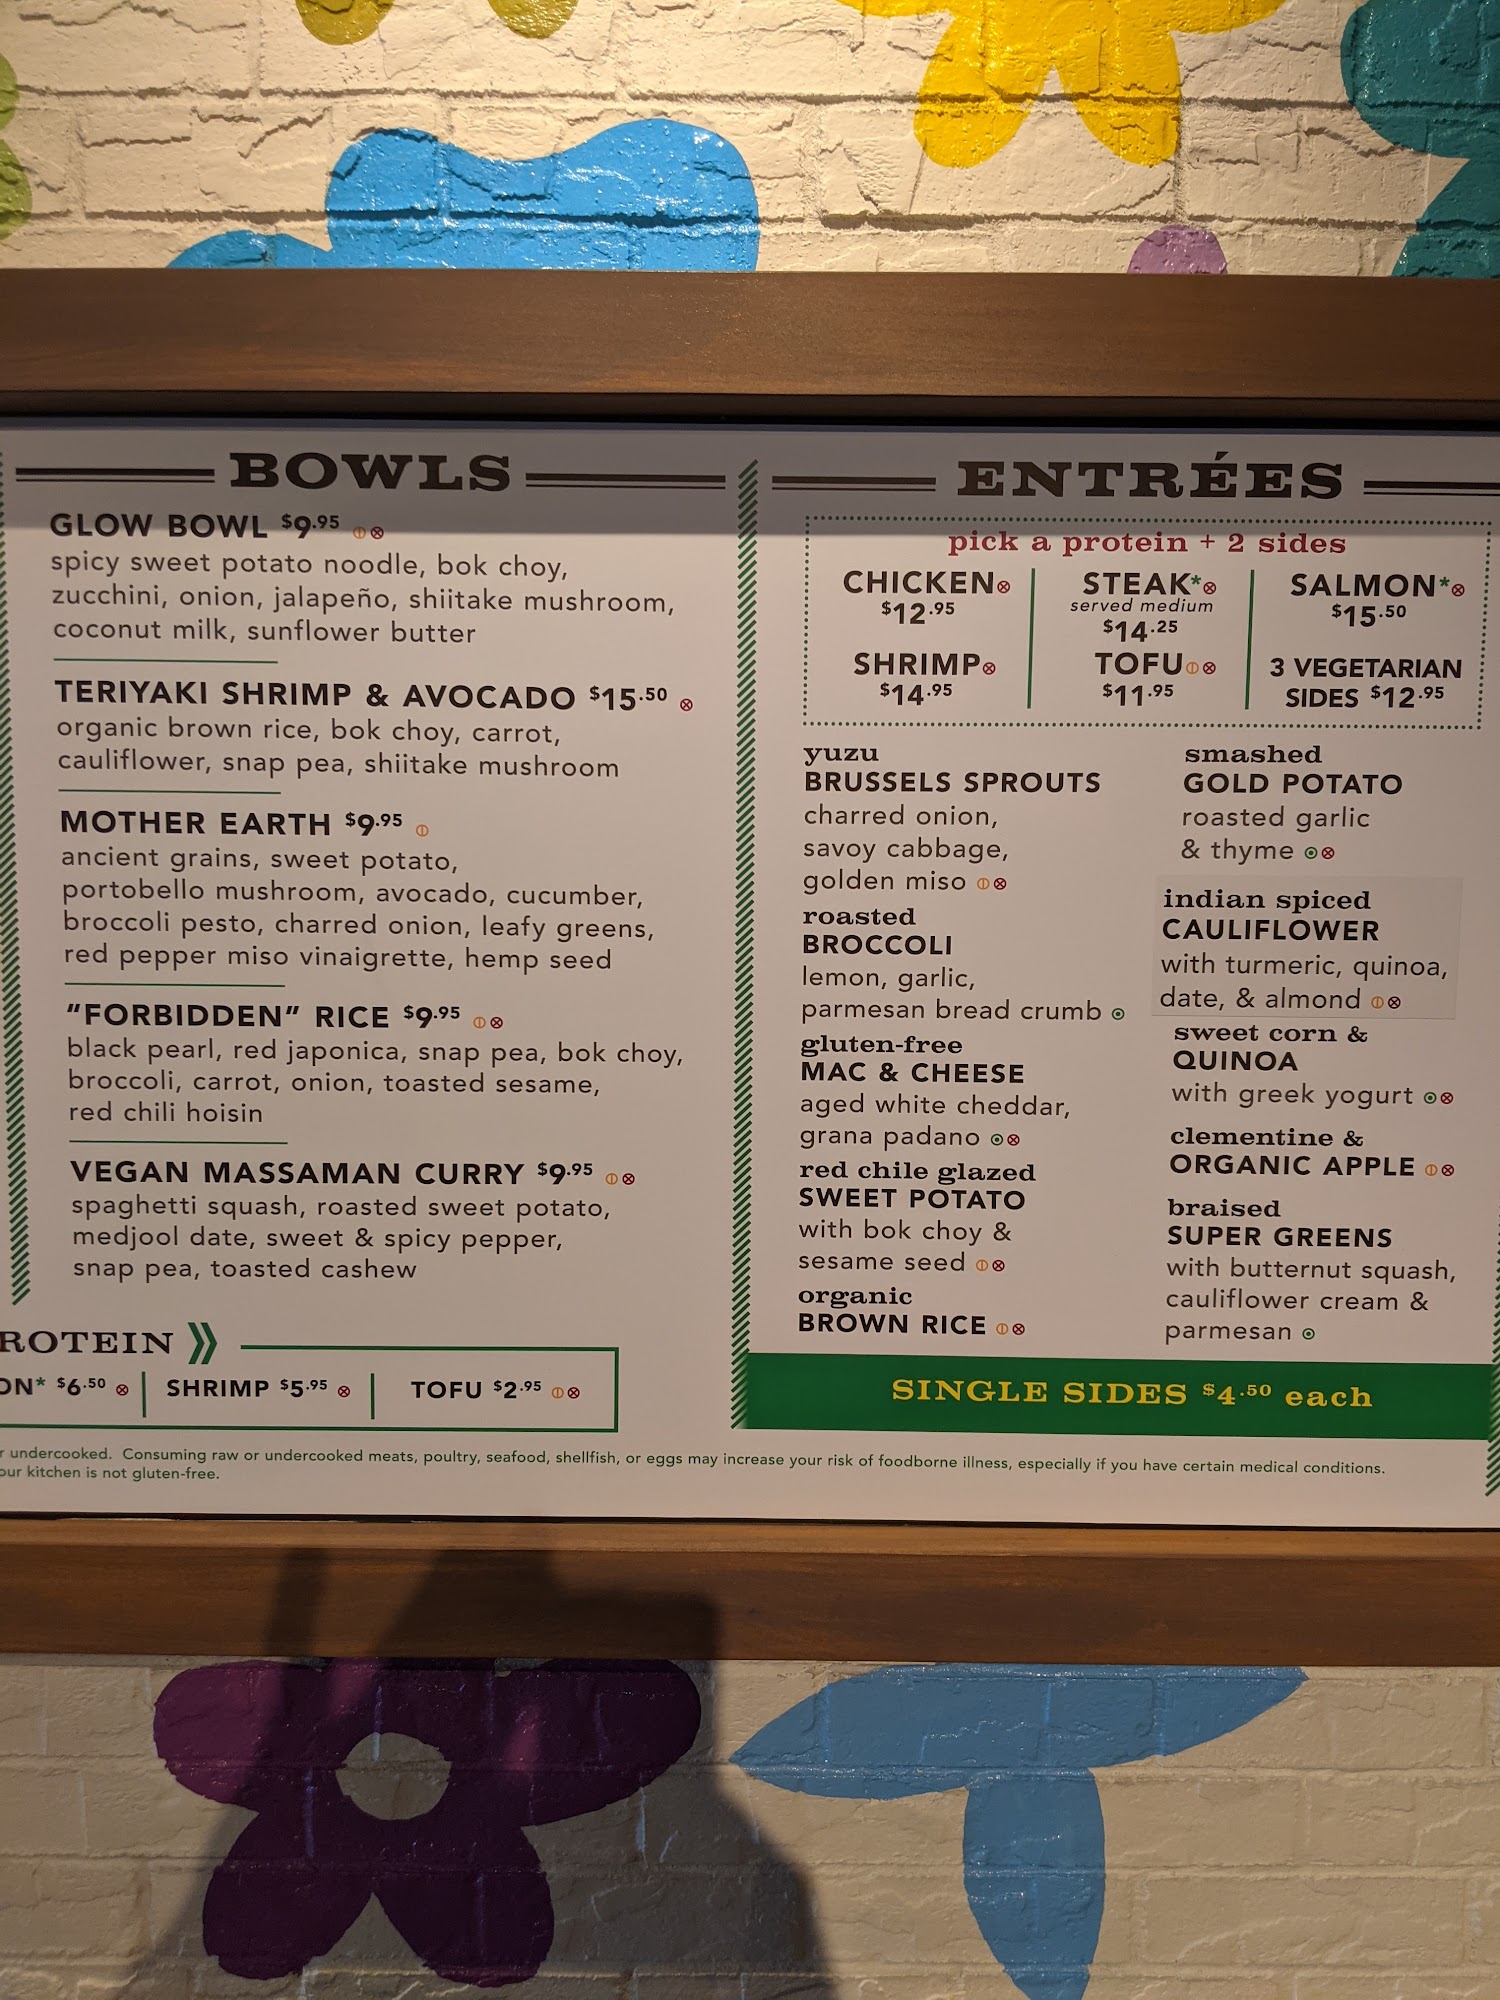 BOWLS
GLOW BOWL $9.95
spicy sweet potato noodle, bok choy,
zucchini, onion, jalapeño, shiitake mushroom,
coconut milk, sunflower butter
TERIYAKI SHRIMP & AVOCADO $15.50
organic brown rice, bok choy, carrot,
cauliflower, snap pea, shiitake mushroom
MOTHER EARTH $9.95
ancient grains, sweet potato,
portobello mushroom, avocado, cucumber,
broccoli pesto, charred onion, leafy greens,
red pepper miso vinaigrette, hemp seed
"FORBIDDEN" RICE $9.95
black pearl, red japonica, snap pea, bok choy,
broccoli, carrot, onion, toasted sesame,
red chili hoisin
VEGAN MASSAMAN CURRY $9.95
spaghetti squash, roasted sweet potato,
medjool date, sweet & spicy pepper,
snap pea, toasted cashew
ROTEIN
ON* $6.50
SHRIMP $5.95
TOFU $2.95
ENTRÉES
pick a protein + 2 sides
CHICKEN
$12.95
STEAK*
served medium
$14.25
SALMON*
$15.50
SHRIMP
$14.95
TOFU
$11.95
3 VEGETARIAN
SIDES $12.95
yuzu
BRUSSELS SPROUTS
charred onion,
savoy cabbage,
golden miso
roasted
BROCCOLI
lemon, garlic,
parmesan bread crumb
gluten-free
MAC & CHEESE
aged white cheddar,
grana padano
red chile glazed
SWEET POTATO
with bok choy &
sesame seed
organic
BROWN RICE
smashed
GOLD POTATO
roasted garlic
& thyme
indian spiced
CAULIFLOWER
with turmeric, quinoa,
date, & almond
sweet corn &
QUINOA
with greek yogurt
clementine &
ORGANIC APPLE
braised
SUPER GREENS
with butternut squash,
cauliflower cream &
parmesan
SINGLE SIDES $4.50 each
r undercooked. Consuming raw or undercooked meats, poultry, seafood, shellfish, or eggs may increase your risk of foodborne illness, especially if you have certain medical conditions.
our kitchen is not gluten-free.